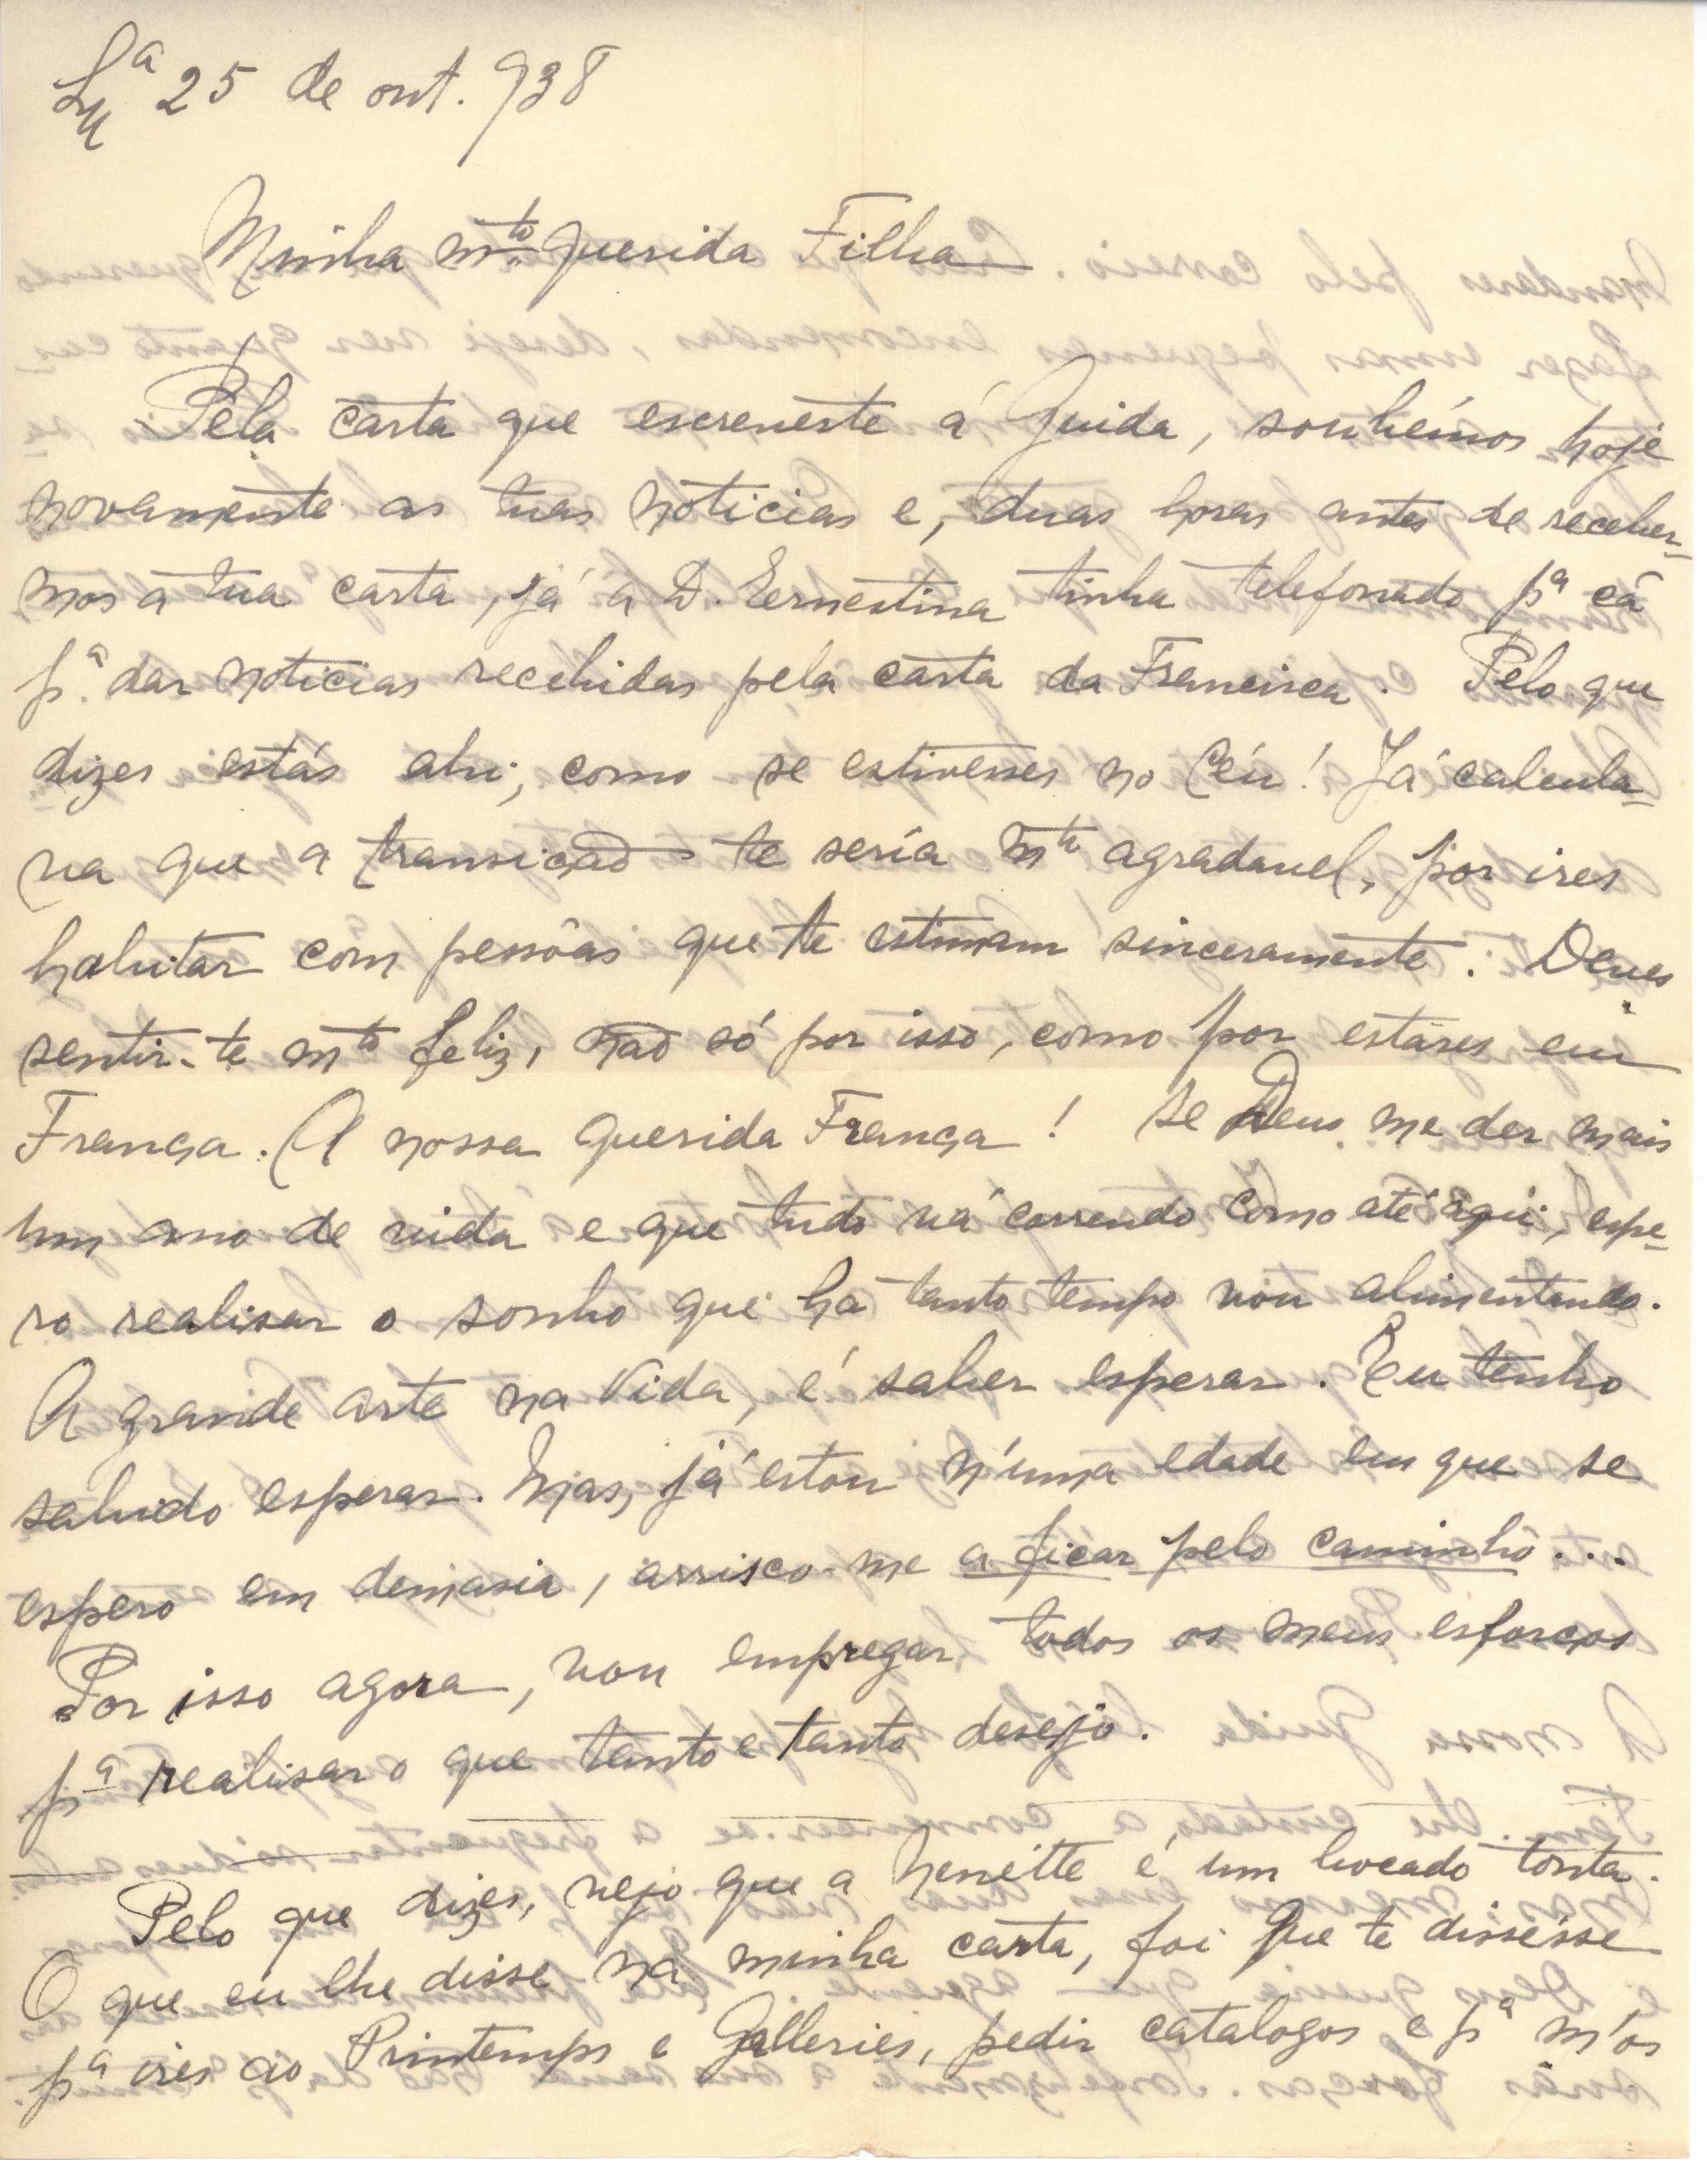 Lxª 25 de out. 938
Minha mto. querida Filha
Pela carta que escreveste á Guida, soubémos hoje
novamente as tuas noticias e, duas horas antes de receber-
mos a tua carta, já a D. Ernestina tinha telefonado pª cá
pª. dar noticias recebidas pela carta da Francisca. Pelo que
dizes estás ahi, como se estivesses no Céu! Já calcula-
va que a transição te seria mto agradavel, por ires
habitar com pessôas que te estimam sinceramente. Deves
sentir-te mto feliz, não só por isso, como por estares em
França. A nossa querida França! Se Deus me der mais
um ano de vida e que tudo vá correndo como até aqui, espe-
ro realisar o sonho que ha tanto tempo vou alimentando.
A grande arte na Vida, é saber esperar. Eu tenho
sabido esperar. Mas, já estou n'uma edade em que se
espero em demasia, arrisco-me a ficar pelo caminho...
Por isso agora, vou empregar todos os meus esforços
pª realisar o que tanto e tanto desejo.
Pelo que dizes, vejo que a Nenitte é um bocado tonta.
O que eu lhe disse na minha carta, foi que te dissésse
pª ires ao Printemps e Galleries, pedir catalogos e pª m'os